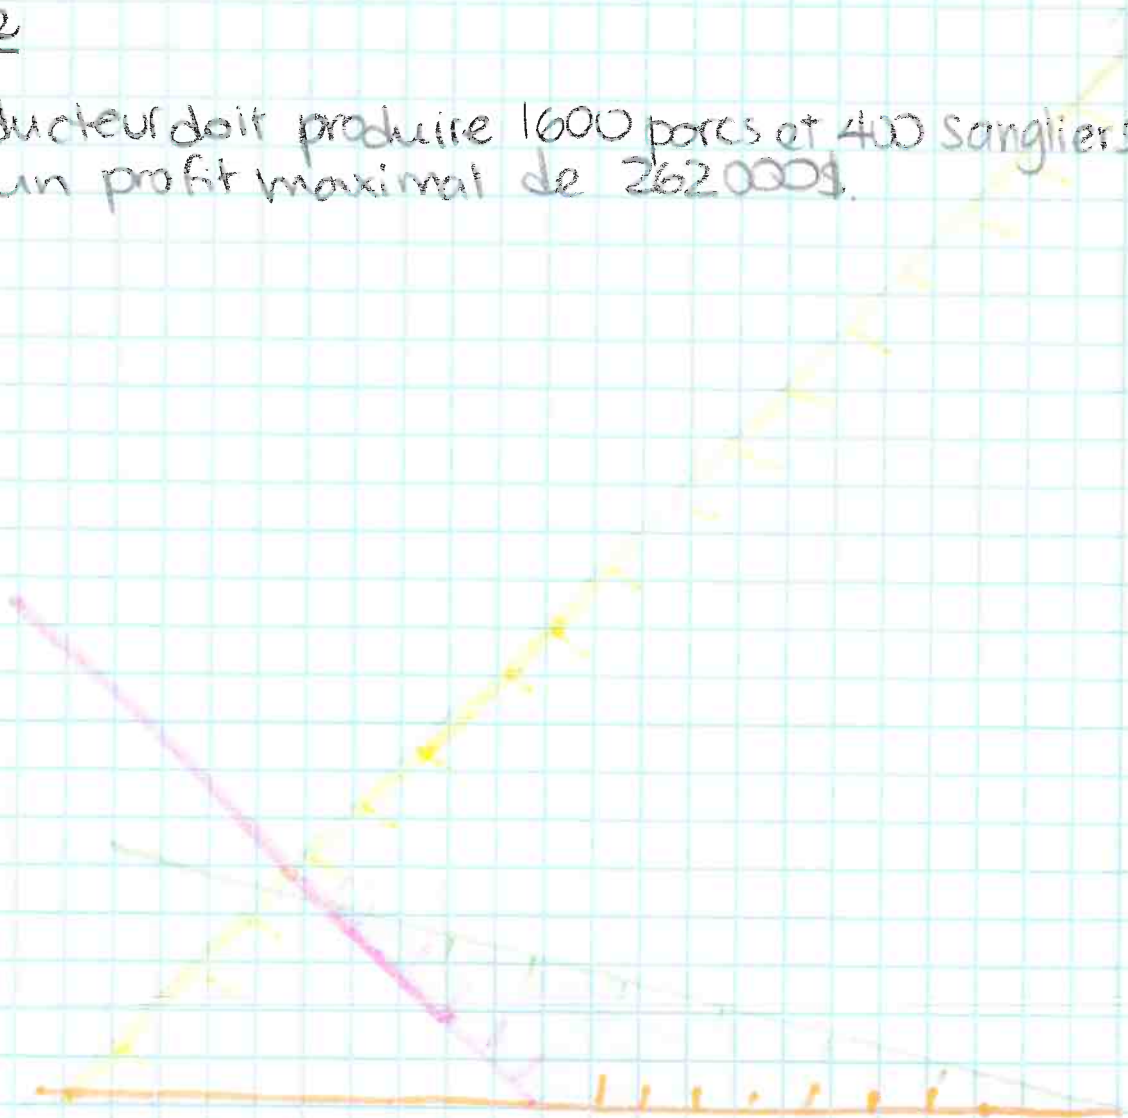 2
ducteur doit produire 1600 porcs et 400 sangliers
un profit maximal de 262000$.